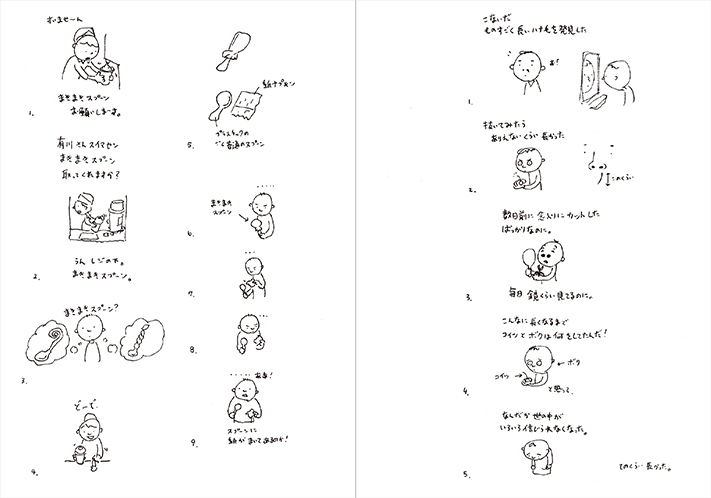 すいませーん
まきまきスプーン
お願いしまーす。
1.
有川さんスイマセン
まきまきスプーン
取ってくれますか?
うん レジの下。
まきまきスプーン。
2.
まきまきスプーン?
3.
どーぞ
4.
紙ナプキン
プラスチックの
ごく普通のスプーン
5.
・・・・・
まきまき
スプーン
6.
・・・
7.
・・・
8.
・・・・・ ああ!
スプーンに
紙がまいてあるのか!
9.
こないだ
ものすごく長いハナ毛を発見した
あ!
1.
抜いてみたら
ありえないくらい長かった
このくらい
2.
数日前に念入りにカットした
ばっかりなのに。
毎日 鏡くらい見てるのに。
3.
こんなに長くなるまで
コイツとボクは何をしてたんだ!
←ボク
コイツ→
と思って、
4.
なんだか世の中が
いろいろ信じられなくなった。
5.
てのくらい 長かった。